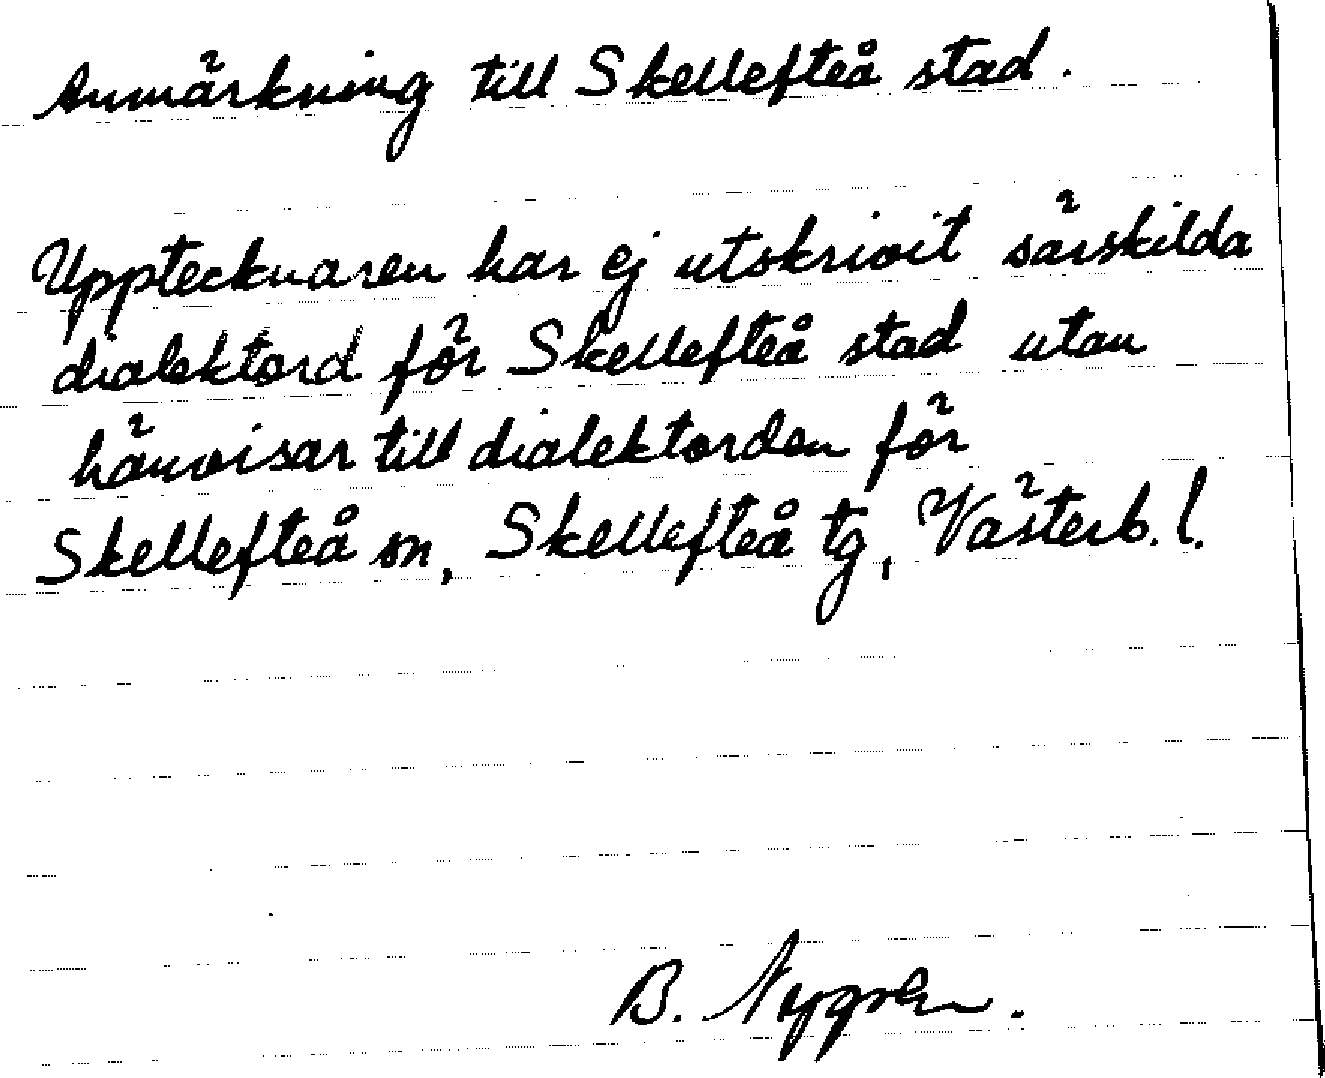 Anmärkning till Skellefteå stad.
Upptecknaren har ej utskrivit särskilda
dialektord för Skellefteå stad utan
hänvisar till dialektorden för
Skellefteå sn, Skellefteå tg, Västerb. l.
B. Nygren.